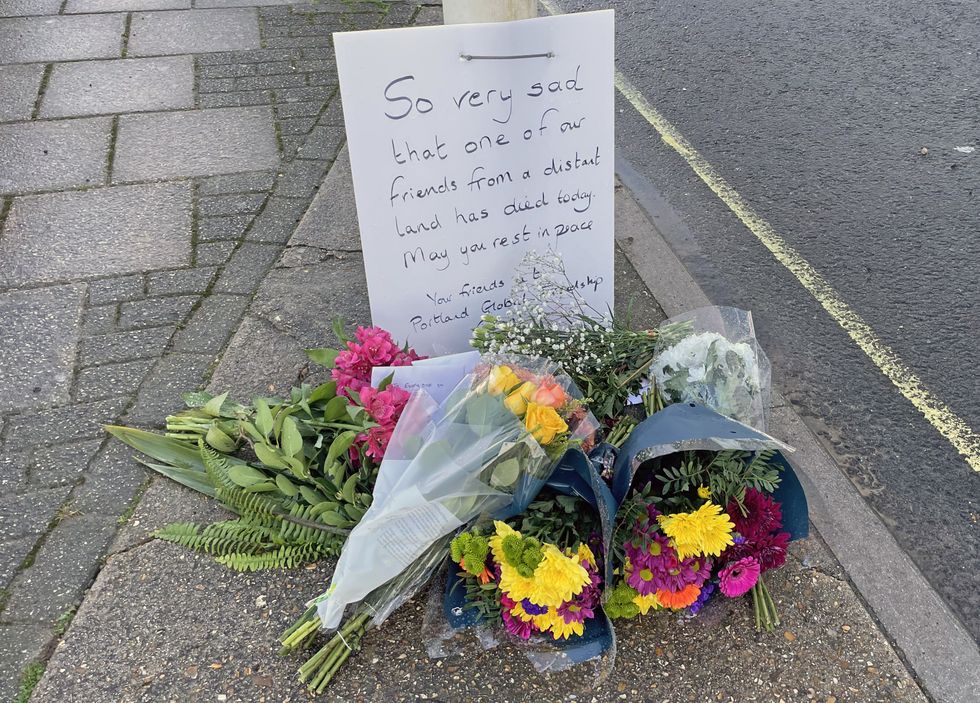 So very sad
that one of our
friends from a distant
land has died today.
May you rest in peace
Your friends at
Portland Global Friendship